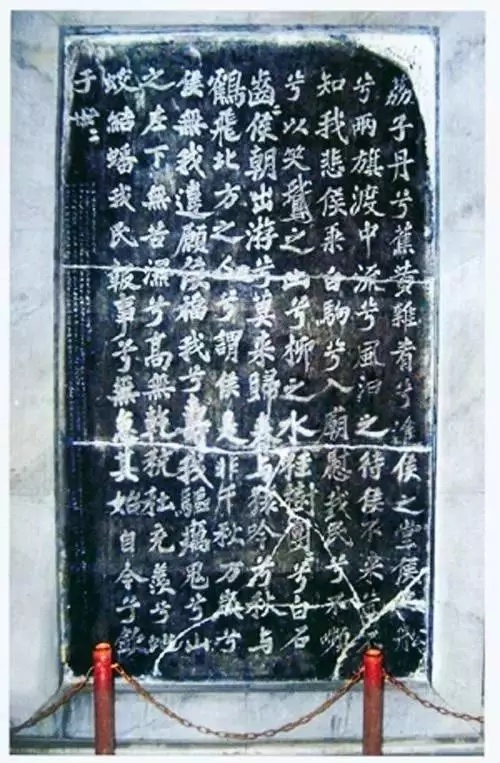 荔子丹兮蕉黃雜肴兮進侯之堂侯之船
兮兩旗渡中流兮風汩之待侯不來兮不
知我悲侯乘白駒兮入廟慰我民兮不嚬
兮以笑鵞之山兮柳之水桂樹團〻兮白石
齒〻侯朝出游兮莫來歸春與猨吟兮秋與
鶴飛北方之人兮謂侯是非千秋萬歲兮
侯無我違願侯福我兮壽我驅癘鬼兮山
之左下無苦濕兮高無乾秔稌充羨兮蛇
蛟結蟠我民報事兮無怠其始自今兮欽
于世〻